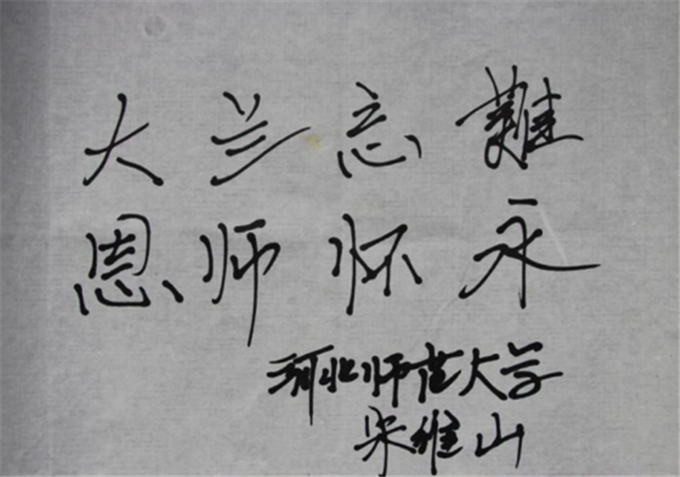 難忘兰大
永怀恩师
河北师范大学
宋维山